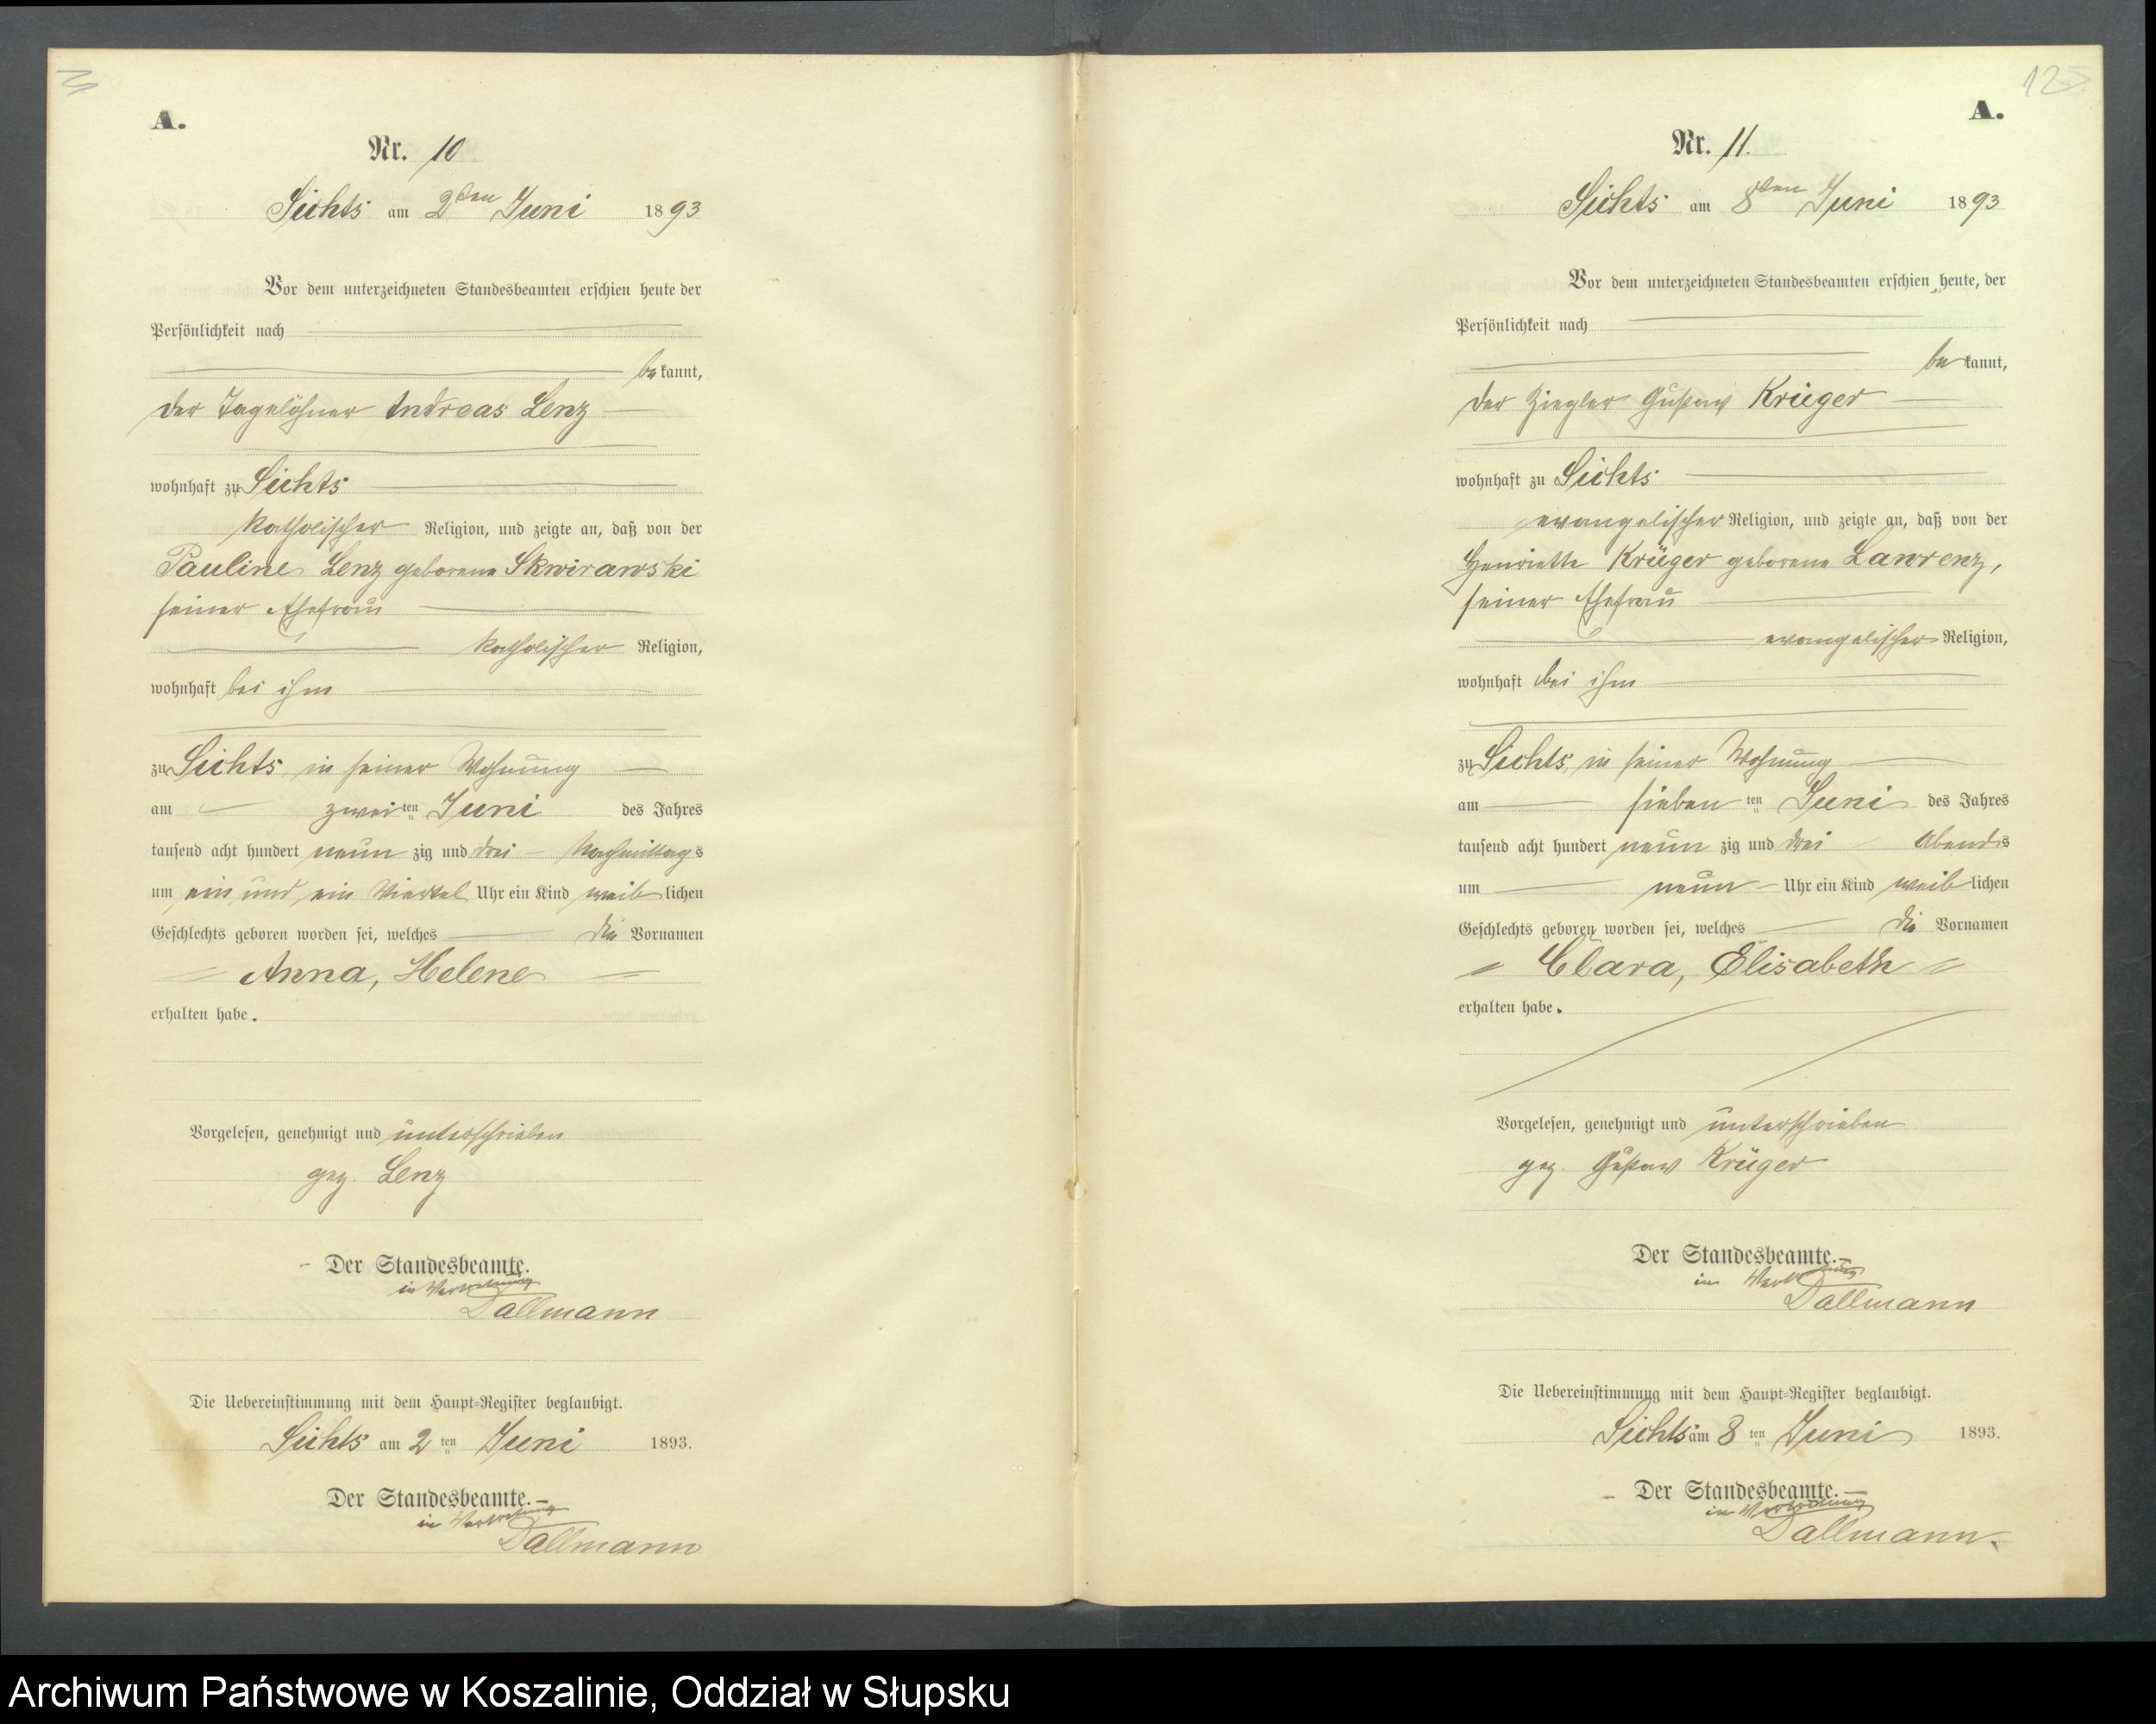 A.
Nr. 10
Sichts am 2ten Juni 1893
Vor dem unterzeichneten Standesbeamten erschien heute der
Persönlichkeit nach
bekannt,
der Tagelöhner Andreas Lenz
wohnhaft zu Sichts
katholischer Religion, und zeigte an, daß von der
Pauline Lenz geborene Skwirawski
seiner Ehefrau
katholischer Religion,
wohnhaft bei ihm
zu Sichts, in seiner Wohnung
am zweiten Juni des Jahres
tausend acht hundert neunzig und drei Nachmittags
um ein und ein Viertel Uhr ein Kind weiblichen
Geschlechts geboren worden sei, welches die Vornamen
Anna, Helene
erhalten habe.
Vorgelesen, genehmigt und unterschrieben
gez. Lenz
Der Standesbeamte.
in Vertretung
Dallmann
Die Uebereinstimmung mit dem Haupt-Register beglaubigt.
Sichts am 2ten Juni 1893.
Der Standesbeamte.
in Vertretung
Dallmann
12
A.
Nr. 11.
Sichts am 8ten Juni 1893
Vor dem unterzeichneten Standesbeamten erschien heute, der
Persönlichkeit nach
bekannt,
der Ziegler Gustav Krüger
wohnhaft zu Sichts
evangelischer Religion, und zeigte an, daß von der
Henriette Krüger geborene Lawrenz,
seiner Ehefrau
evangelischer Religion,
wohnhaft bei ihm
zu Sichts, in seiner Wohnung
am siebenten Juni des Jahres
tausend acht hundert neunzig und drei Abends
um neun Uhr ein Kind weiblichen
Geschlechts geboren worden sei, welches die Vornamen
Clara, Elisabeth
erhalten habe.
Vorgelesen, genehmigt und unterschrieben
gez. Gustav Krüger
Der Standesbeamte.
in Vertretung
Dallmann
Die Uebereinstimmung mit dem Haupt-Register beglaubigt.
Sichts am 8ten Juni 1893.
Der Standesbeamte.
in Vertretung
Dallmann.
Archiwum Państwowe w Koszalinie, Oddział w Słupsku